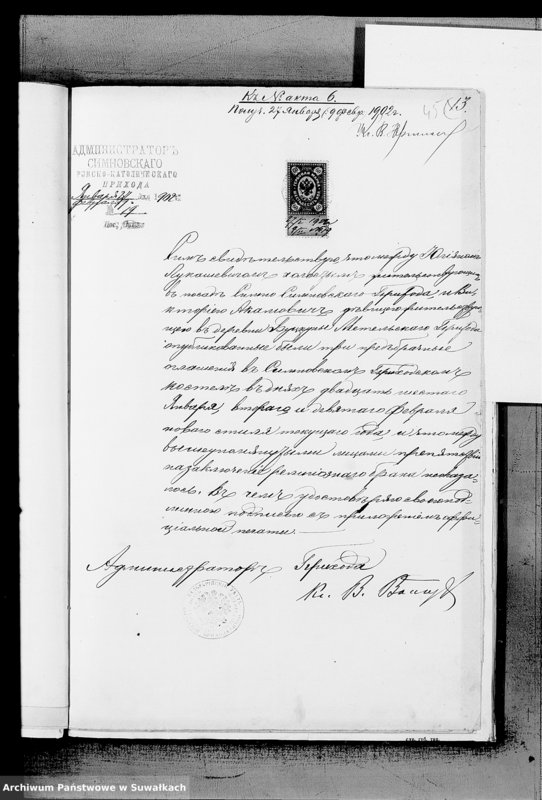 Къ № акта 6.
Конц. 27 Января / 9 Февр. 1902 г.
45 13.
АДМИНИСТРАТОРЪ
СИМНОВСКАГО
РИМСКО-КАТОЛИЧЕСКАГО
ПРИХОДА
Января 27 дня 1902 г.
№ 19
Симъ свидѣтельствую, что между
Лукашевичемъ холостымъ жительствующимъ
въ посадѣ Симно Симновскаго Прихода и Ви-
кторіею Адамовичъ дѣвицею жительствую-
щею въ деревни Метельскаго Прихода
опубликованы были три предбрачныя
оглашенія въ Симновскомъ Приходскомъ
костелѣ въ дняхъ двадцать шестаго
Января, втораго и девятаго Февраля
новаго стиля текущаго года и что между
вышеупомянутыми лицами препятствій
на заключеніе религіознаго брака не оказа-
лось. Въ чемъ удостовѣряю своею под-
линною подписью съ приложеніемъ оффи-
ціальной печати.
Администраторъ Прихода
Кс. В.
Archiwum Państwowe w Suwałkach